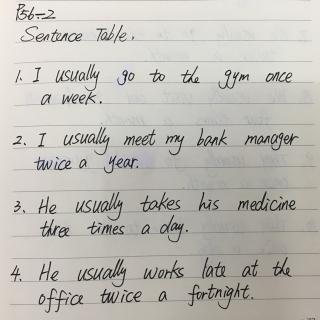 P56-2
Sentence Table.
1. I usually go to the gym once
a week.
2. I usually meet my bank manager
twice a year.
3. He usually takes his medicine
three times a day.
4. He usually works late at the
office twice a fortnight.